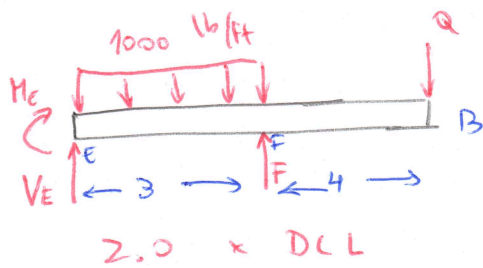 1000 lb/ft
Q
ME
E
F
B
VE
3
F
4
2.0 x DCL